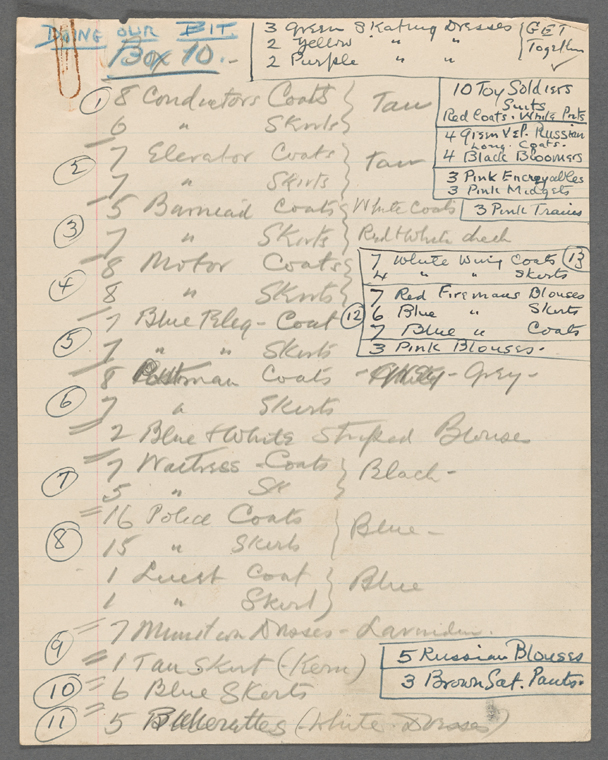 DOING OUR BIT
Box 10.-
3 Green Skating Dresses
2 Yellow " "
2 Purple " "
GET
Together
✓
10 Toy Soldiers
Suits
Red Coats. White Pnts
4 Green Vel. Russian
Long Coats.
4 Black Bloomers
3 Pink Encroyables
3 Pink Midgets
3 Pink Trains
1 8 Conductors Coats } Tan
6 " Skirts
2 7 Elevator Coats } Tan
7 " Skirts
5 Coats White Coats
3 7 " Skirts Red & White check
8 Motor Coats
4 8 " Skirts
7 White Wing Coats 13
4 " " Skirts
12 7 Red Firemans Blouses
6 Blue " Skirts
7 Blue " Coats
3 Pink Blouses-
7 Blue - Coat
5 7 " " Skirts
8 Postman Coats - Grey-
6 7 " Skirts
2 Blue & White Striped Blouses
7 7 Waitress - Coats } Black-
5 " Sk
16 Police Coats } Blue-
8 15 " Skirts
1 Coat } Blue
1 " Skirt
9 7 Munition Dresses - Lavender.
1 Tan Skirt (-Kern)
10 6 Blue Skirts
11 5 (White Dresses)
5 Russian Blouses
3 Brown Sat. Pants-